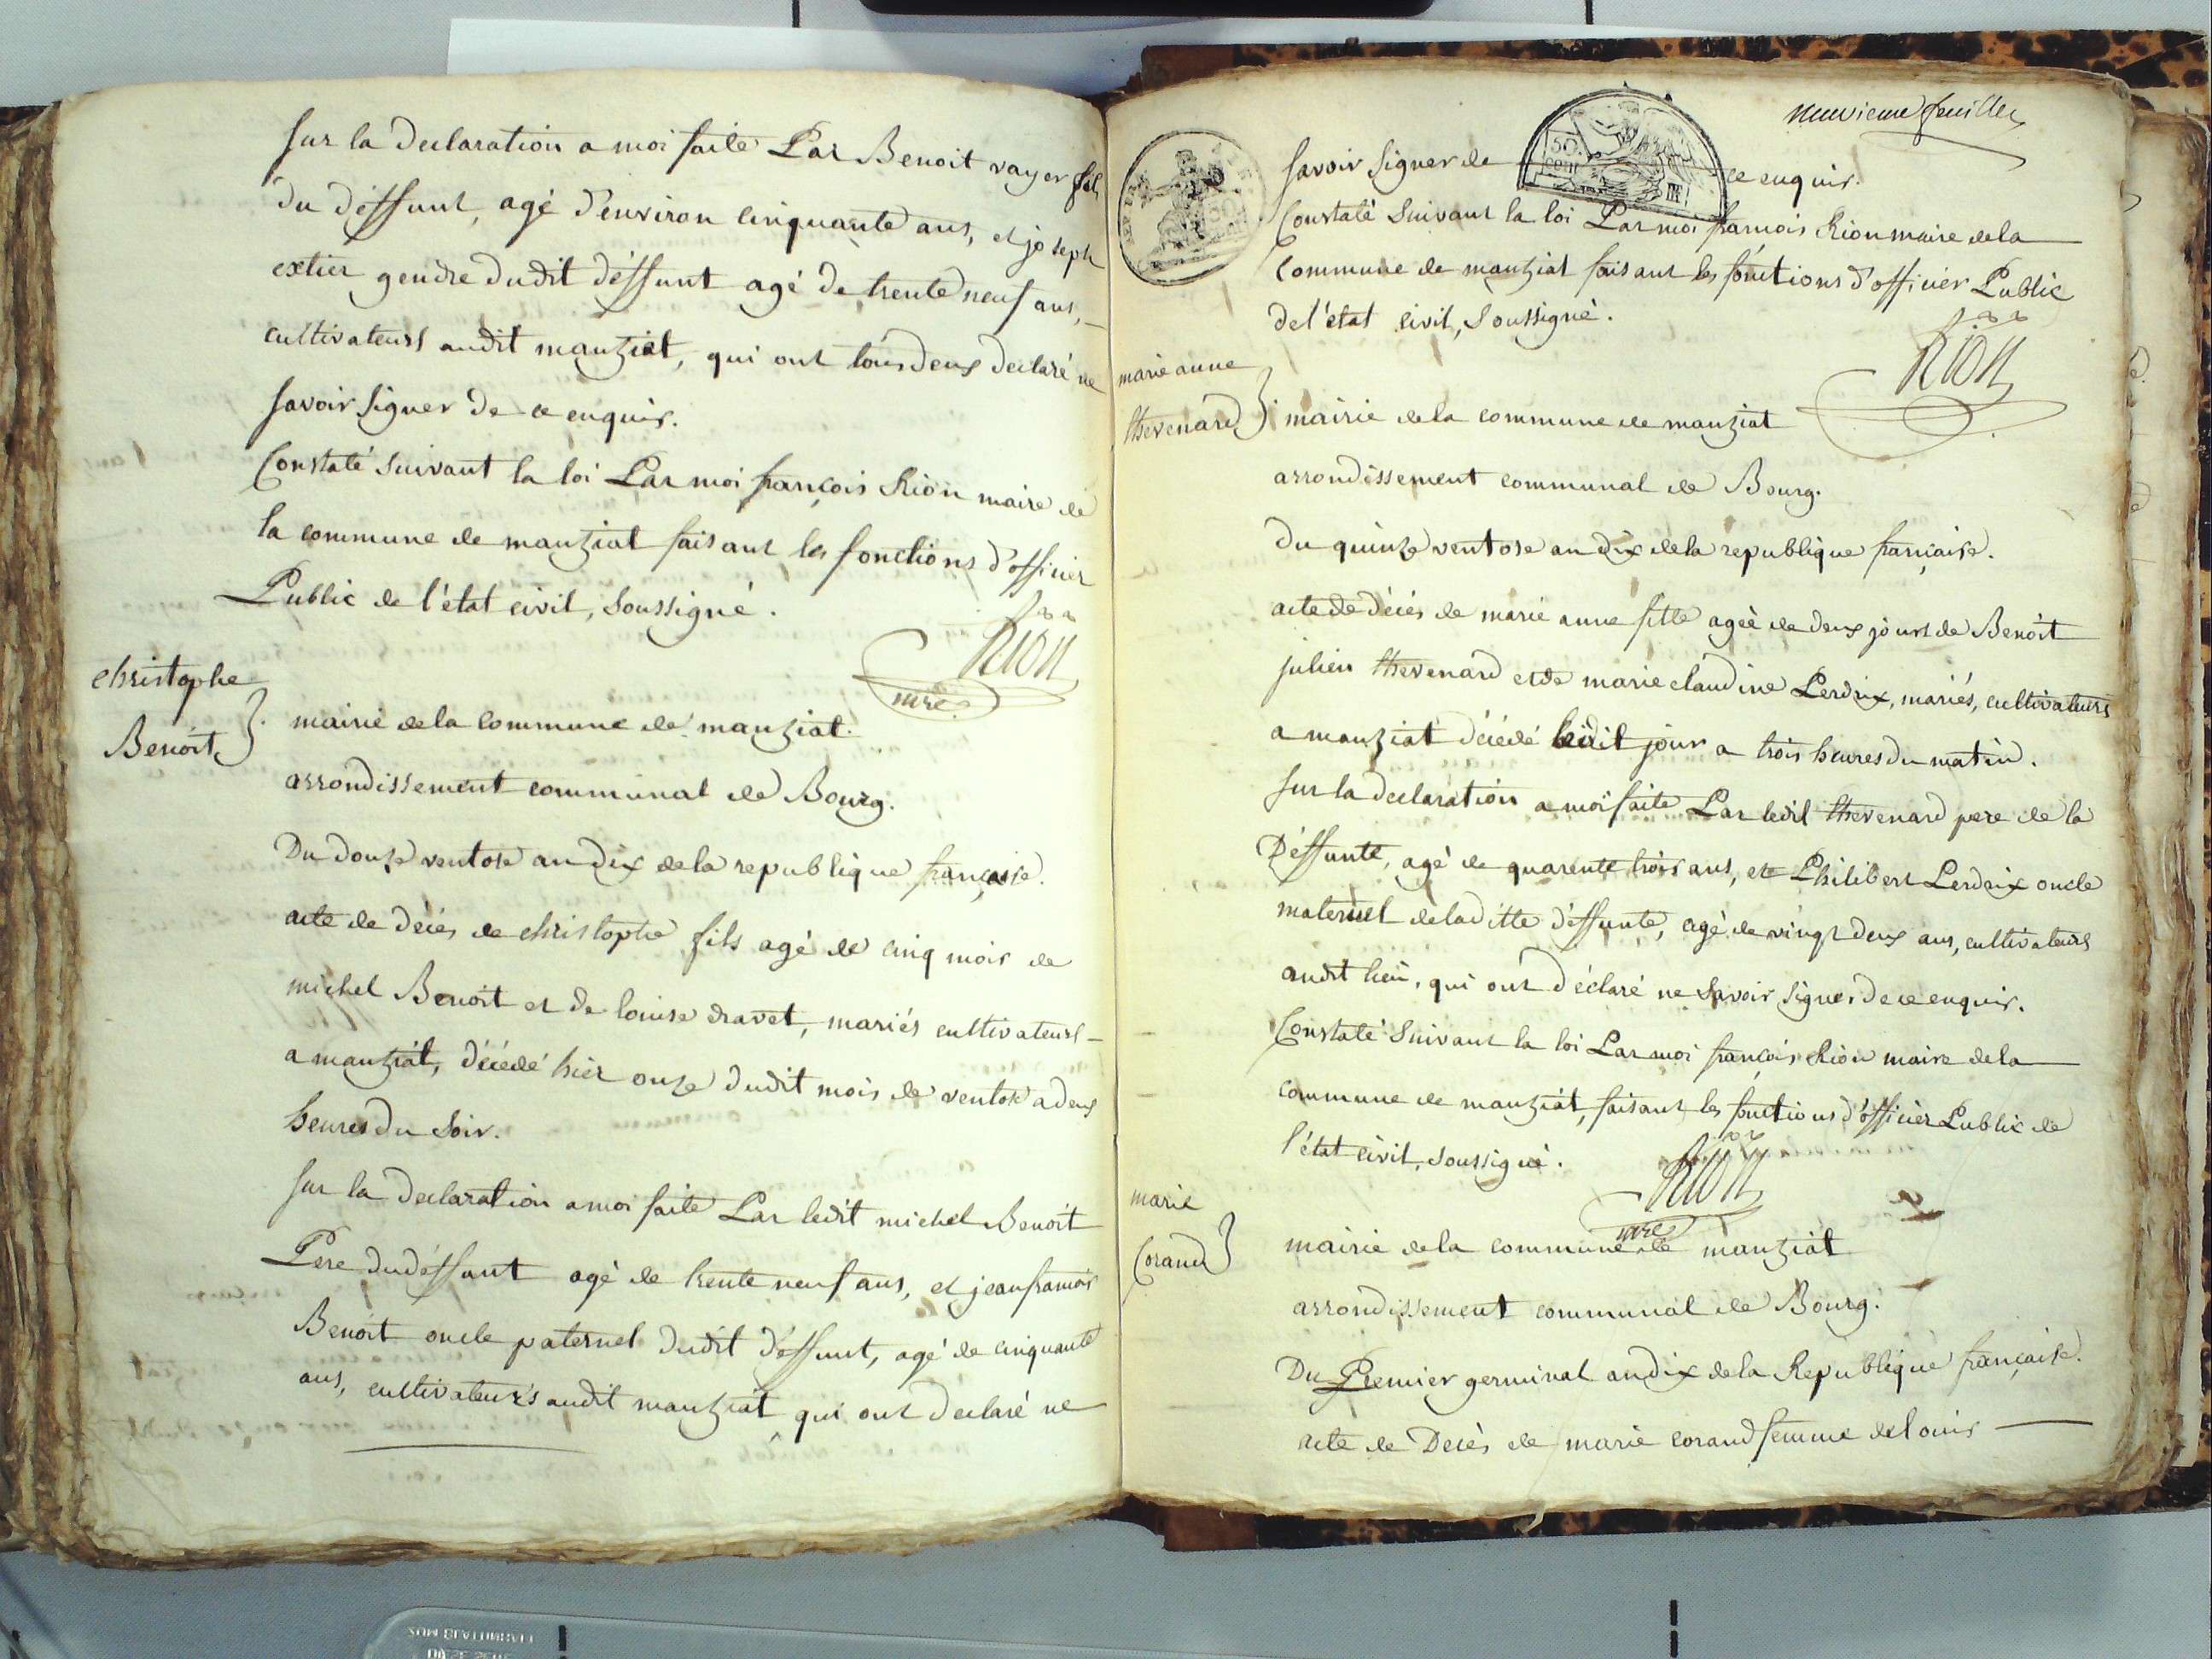 sur la declaration a moi faite Par Benoit vayer fils
du déffunt, agé d'environ cinquante ans, et joseph
extier gendre dudit déffunt agé de trente neuf ans,
cultivateurs audit manziat, qui ont tous deux declaré ne
savoir signer de ce enquis.
Constaté suivant la loi Par moi françois Rion maire de
la commune de manziat faisant les fonctions d'officier
Public de l'état civil, soussigné.
Rion
mre
christophe
Benoit
mairie de la commune de manziat.
arrondissement communal de Bourg.
Du douze ventose an dix de la republique française.
acte de décés de christophe fils agé de cinq mois de
michel Benoit et de louise dravet, mariés cultivateurs
a manziat, décédé hier onze dudit mois de ventose a deux
heures du soir.
sur la declaration a moi faite Par ledit michel Benoit
Pere du déffunt agé de trente neuf ans, et jean françois
Benoit oncle paternel dudit déffunt, agé de cinquante
ans, cultivateurs audit manziat qui ont declaré ne
neuvieme feuillet
savoir signer de ce enquis.
50
cent
Constaté suivant la loi Par moi françois Rion maire de la
commune de manziat faisant les fonctions d'officier Public
de l'état civil, soussigné.
Rion
marie anne
thevenard
mairie de la commune de manziat
arrondissement communal de Bourg.
du quinze ventose an dix de la republique française.
acte de décés de marie anne fille agée de deux jours de Benoit
julien thevenard et de marie claudine Perdrix, mariés, cultivateurs
a manziat décédé ledit jour a trois heures du matin.
sur la declaration a moi faite Par ledit thevenard pere de la
Déffunte, agé de quarente trois ans, et Philibert Perdrix oncle
maternel de laditte déffunte, agé de vingt deux ans, cultivateurs
audit lieu, qui ont déclaré ne savoir signer de ce enquis.
Constaté suivant la loi Par moi françois Rion maire de la
commune de manziat, faisant les fonctions d'officier Public de
l'état civil, soussigné.
Rion
mre
marie
Corand
mairie de la commune de manziat
arrondissement communal de Bourg.
Du Premier germinal an dix de la Republique française.
acte de Décès de marie corand femme de louis